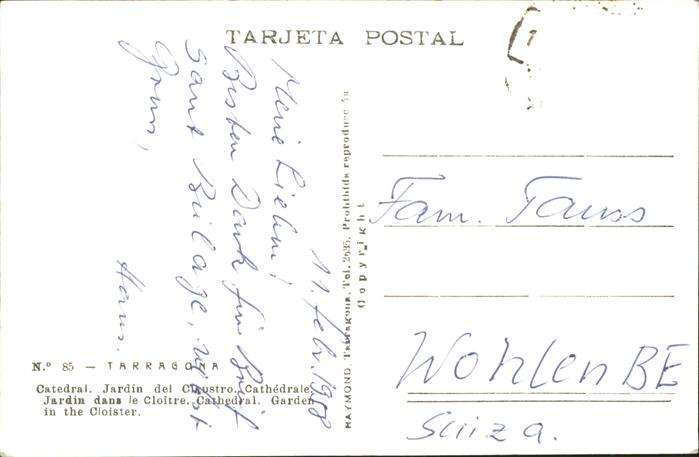 TARJETA POSTAL
11. febr. 1968
Meine Lieben!
Besten Dank für Brief
samt Beilage,
Gruss,
Hans.
Fam. Tauss
Wohlen BE
Suiza.
N.º 85 — TARRAGONA
Catedral. Jardin del Claustro. Cathédrale.
Jardin dans le Cloître. Cathedral. Garden
in the Cloister.
RAYMOND. Tarragona. Tel. 2635. Prohibida reproduccion
Copyright